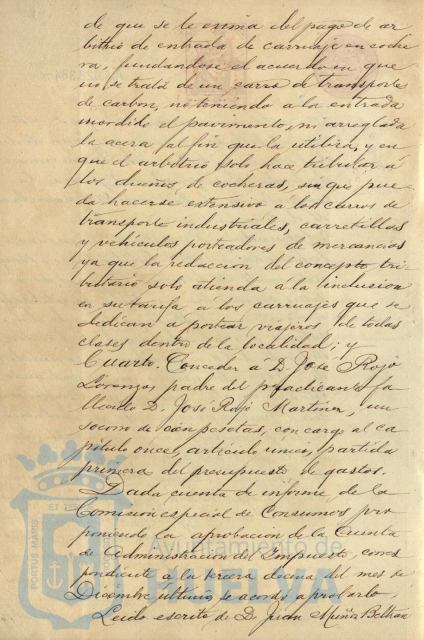 de que se le exima del pago de ar
bitrio de entrada de carruaje en coche
ra, fundandose el acuerdo en que
no se trata de un carro de transporte
de carbon, no teniendo a la entrada
mordido el pavimento, ni arreglada
la acera al fin que la utiliza, y en
que el arbitrio solo hace tributar á
los dueños de cocheras, sin que pue
da hacerse extensivo a los carros de
transporte industriales, carretillas
y vehículos porteadores de mercancias
ya que la redaccion del concepto tri-
butario solo atienda a la inclusion
en su tarifa á los carruajes que se
dedican á portear viajeros de todas
clases dentro de la localidad; y
Cuarto. Conceder á D. José Rojo
Lorenzo, padre del practicante fa
llecido D. José Rojo Martinez, un
socorro de cien pesetas, con cargo al ca
pítulo once, artículo unico, partida
primera del presupuesto de gastos.
Dada cuenta de informe de la
Comision especial de Consumos pro
poniendo la aprobacion de la Cuenta
de Administracion del Impuesto corres
pondiente á la tercera decena del mes de
Diciembre ultimo, se acordó aprobarlo.
Leido escrito de D. Juan Muñoz Beltran
Ayuntamiento de
HUELVA
PORTUS MARIS